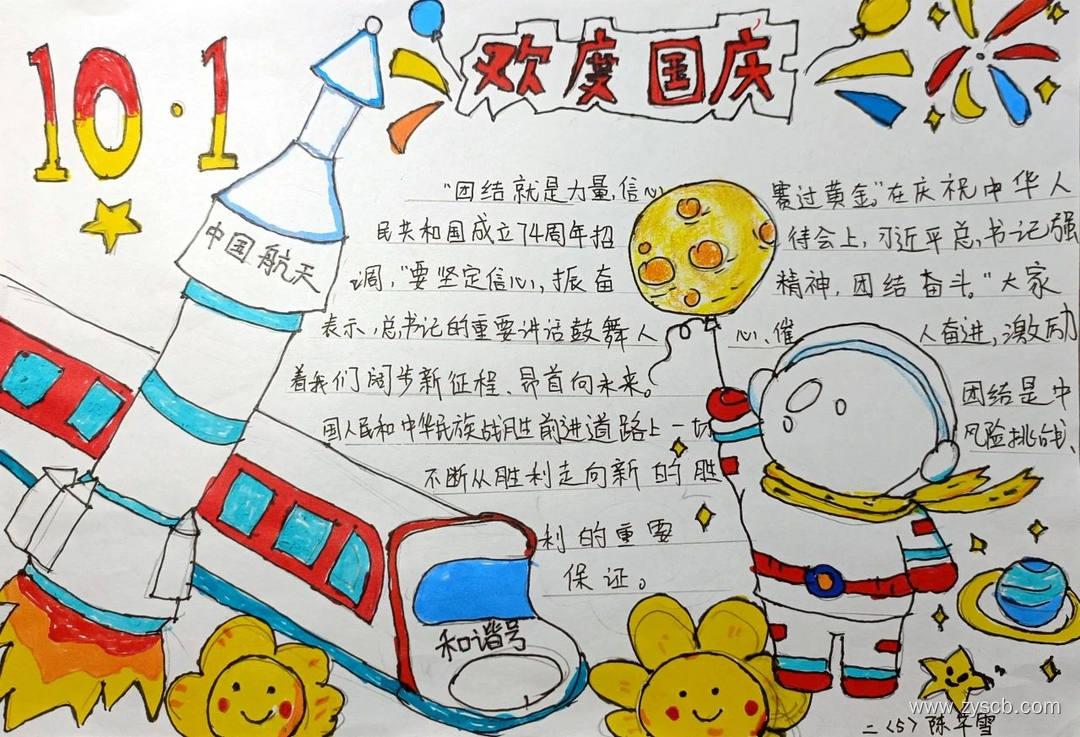 10·1
欢度国庆
中国航天
“团结就是力量,信心赛过黄金。”在庆祝中华人
民共和国成立74周年招待会上,习近平总书记强
调,“要坚定信心,振奋精神,团结奋斗。”大家
表示,总书记的重要讲话鼓舞人心、催人奋进,激励
着我们阔步新征程、昂首向未来。团结是中
国人民和中华民族战胜前进道路上一切风险挑战、
不断从胜利走向新的胜
利的重要
保证。
和谐号
www.zyscb.com
二(5)陈 雪